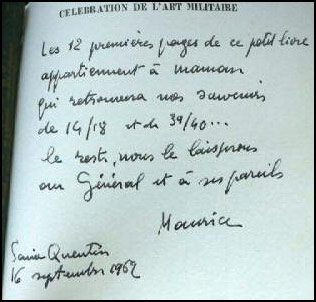 CELEBRATION DE L'ART MILITAIRE
Les 12 premières pages de ce petit livre
appartiennent à maman
qui retrouvera nos souvenirs
de 14/18 et de 39/40...
le reste, nous le laisserons
au Général et à ses pareils
Maurice
Saint Quentin
16 septembre 1962